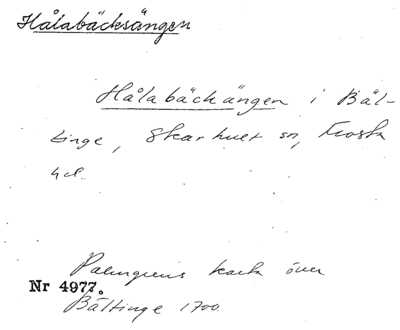 Hålabäcksängen
Hålabäckängen i Bäl-
tinge, Skarhult sn, Frosta
hd.
Palmgrens karta över
Nr 4977.
Bältinge 1700.